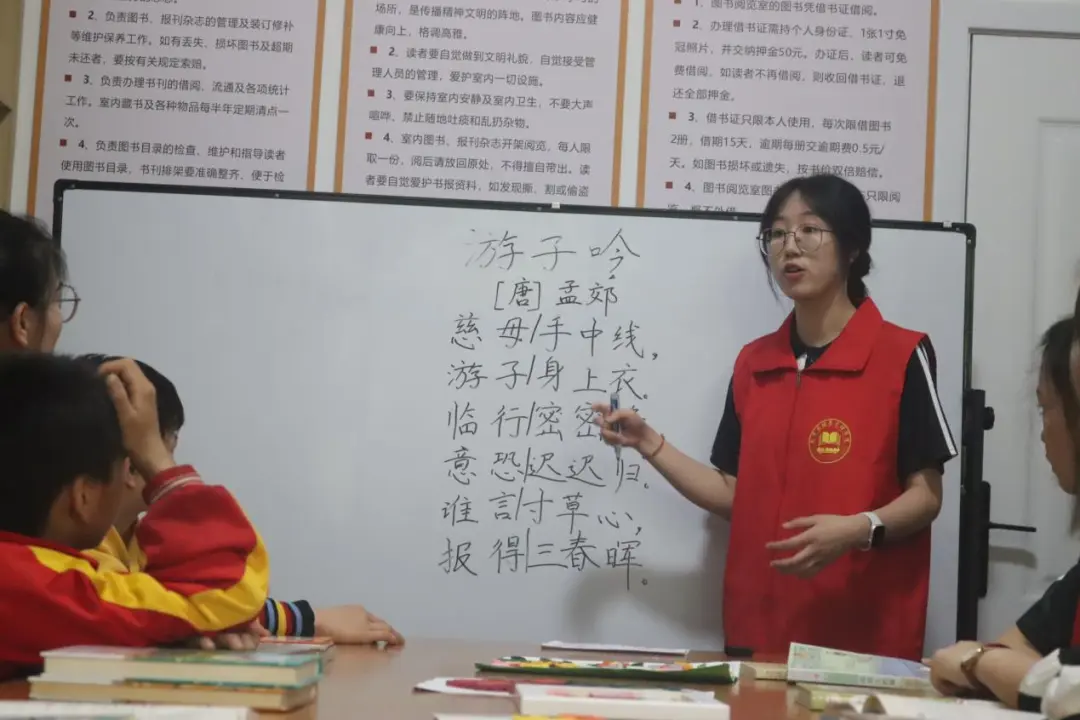 2、负责图书、报刊杂志的管理及装订修补
等维护保养工作。如有丢失、损坏图书及超期
未还者，要按有关规定索赔。
3、负责办理书刊的借阅，流通及各项统计
工作。室内藏书及各种物品每半年定期清点一
次。
4、负责图书目录的检查，维护和指导读者
使用图书目录，书刊排架要准确整齐，便于检
场所，是传播精神文明的阵地。图书内容应健
康向上，格调高雅。
2、读者要自觉做到文明礼貌，自觉接受管
理人员的管理，爱护室内一切设施。
3、要保持室内安静及室内卫生，不要大声
喧哗，禁止随地吐痰和乱扔杂物。
4、室内图书、报刊杂志开架阅览，每人限
取一份，阅后请放回原处，不得擅自带出。读
者要自觉爱护书报资料，如发现撕、割或偷盗
1、图书阅览室的图书凭借书证借阅。
2、办理借书证需持个人身份证、1张1寸免
冠照片，并交纳押金50元。办证后，读者可免
费借阅，如读者不再借阅，则收回借书证，退
还全部押金。
3、借书证只限本人使用，每次限借图书
2册，借期15天，逾期每册交逾期费0.5元/
天。如图书损坏或遗失，按书价双倍赔偿。
4、图书阅览室图
只限阅
游子吟
[唐] 孟郊
慈母/手中线，
游子/身上衣。
临行/密密
意恐/迟迟归。
谁言/寸草心，
报得/三春晖。